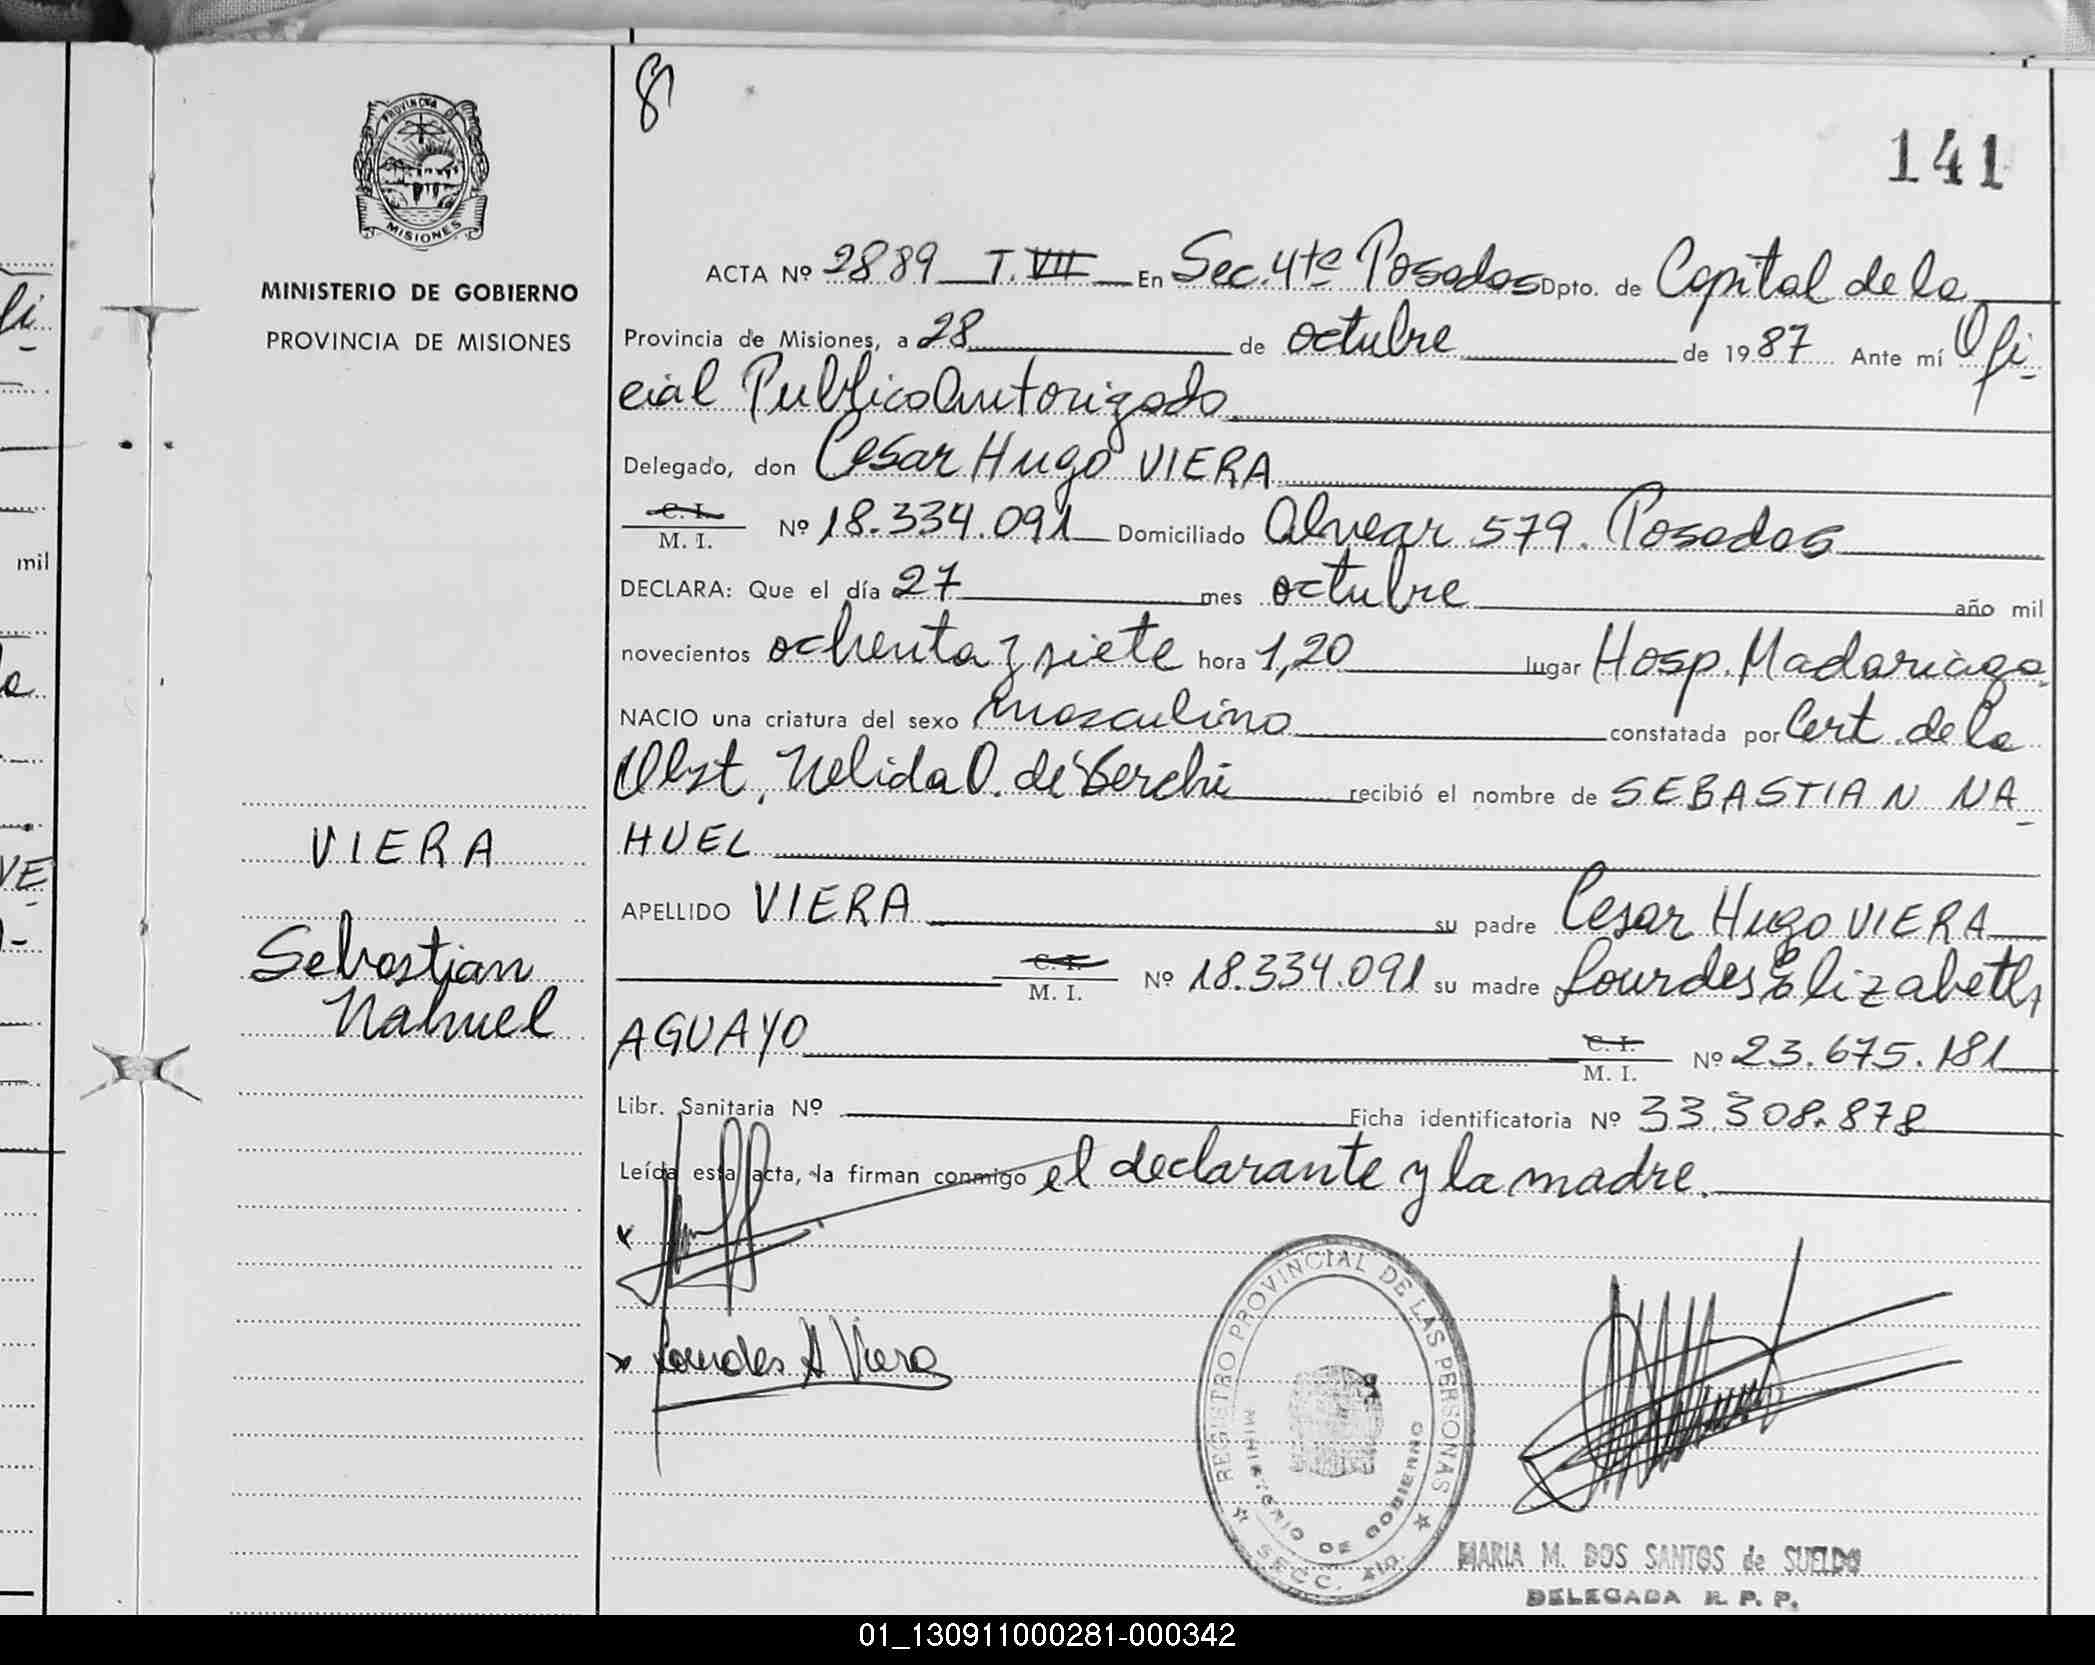 8
141
PROVINCIA DE
MISIONES
MINISTERIO DE GOBIERNO
PROVINCIA DE MISIONES
ACTA Nº 2889 T. VII En Sec. 4ta Posadas Dpto. de Capital de la
Provincia de Misiones, a 28 de octubre de 1987 Ante mí Ofi-
cial Publico Autorizado
Delegado, don Cesar Hugo VIERA
C. I.
M. I. Nº 18.334.091 Domiciliado Alvear 579. Posadas
DECLARA: Que el día 27 mes octubre año mil
novecientos ochenta y siete hora 1,20 lugar Hosp. Madariaga.
NACIO una criatura del sexo masculino constatada por Cert. de la
Obst. Nelida O. de recibió el nombre de SEBASTIAN NA-
HUEL
APELLIDO VIERA su padre Cesar Hugo VIERA
C. I.
M. I. Nº 18.334.091 su madre Lourdes Elizabeth
AGUAYO C. I.
M. I. Nº 23.675.181
Libr. Sanitaria Nº Ficha identificatoria Nº 33.308.878
Leída esta acta, la firman conmigo el declarante y la madre.
VIERA
Sebastian
Nahuel
x
x Lourdes A Viera
REGISTRO PROVINCIAL DE LAS PERSONAS
MINISTERIO DE GOBIERNO
SECC. 4ta.
MARIA M. DOS SANTOS de SUELDO
DELEGADA R. P. P.
mil
VE
01_130911000281-000342